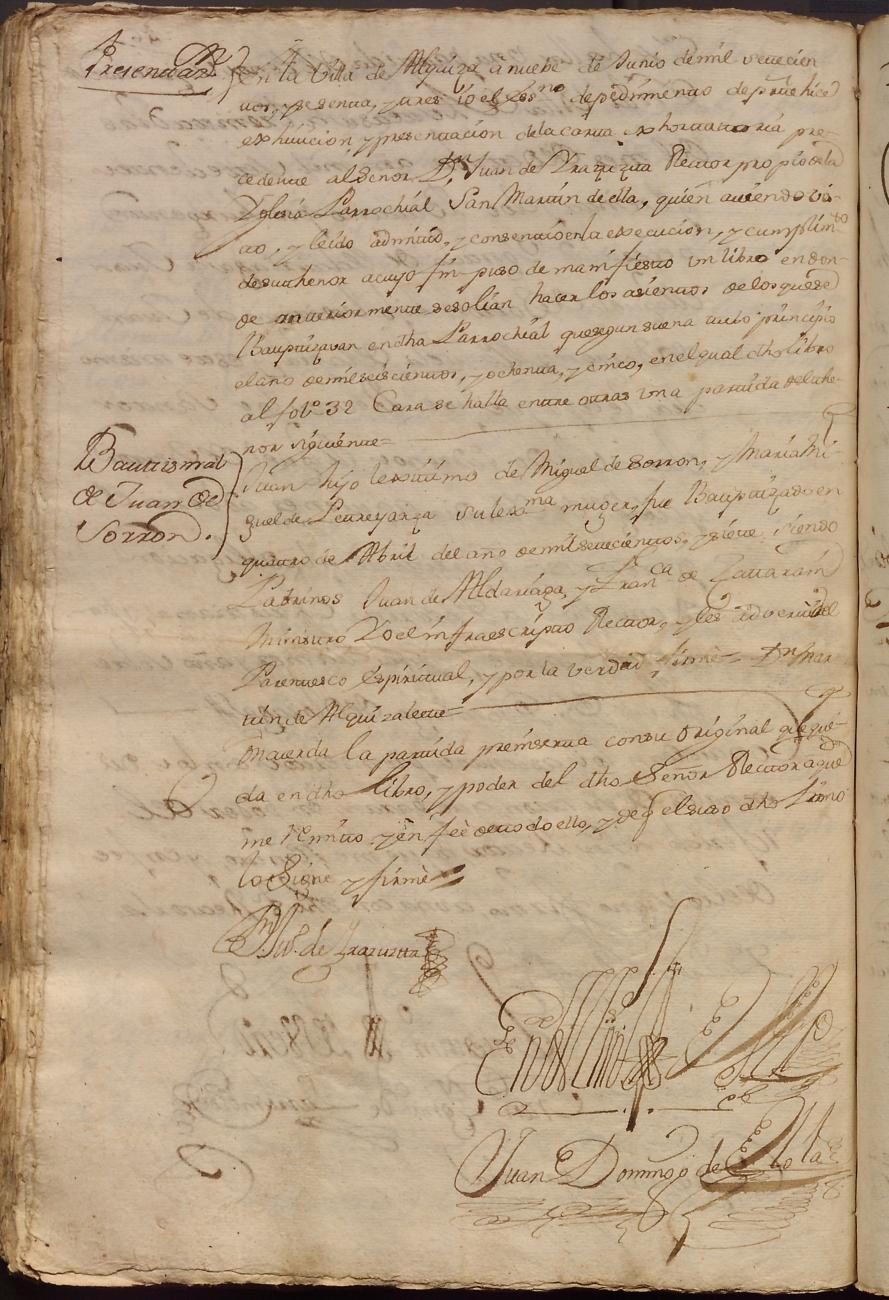 Presentaz.on
En la Villa de Alquiza a nuebe de Junio de mil setecien
tos, y sesenta, y tres Yo el Ess.no de pedimento de parte hice
exhivicion, y presentacion de la carta exhortatoria pre-
cedente al Señor D.n Juan de Yrazuzta Rector propio de la
Yglesia Parrochial San Martin de ella, quien aviendo vis-
to, y leido admitio, y consentio en la execucion, y cumplim.to
de su thenor a cuyo fin puso de manifiesto un libro en don-
de anteriormente se solian hacer los asientos de los que se
Bauptizavan en dha Parrochial que segun suena tubo principio
el año de mil seiscientos, y ochenta, y cinco, en el qual dho libro
al fol.o 32 Cara se halla entre otras una partida del the-
nor siguiente=
Bautismal
de Juan de
Sorron.
Juan hijo lexitimo de Miguel de Sorron, y Maria Mi-
guel de Lereyarza su lex.ma muger, fue Bauptizado en
quatro de Abril del año de mil setecientos, y siete, siendo
Padrinos Juan de Aldariaga, y Fran.ca de Zattarain
Ministro Yo el infraescripto Rector, y les adverti del
Parentesco espiritual, y por la verdad firmè= D.n Mar
tin de Alquizalete=
Concuerda la partida preinserta con su original que que-
da en dho libro, y poder del dho Señor Rector a que
me remito y en feè de todo ello, y de q el suso dho firmo
lo Signe y firmè
D.n Ju.o de Yrazuzta
En testim.o de verdad
Juan Domingo de Ollo